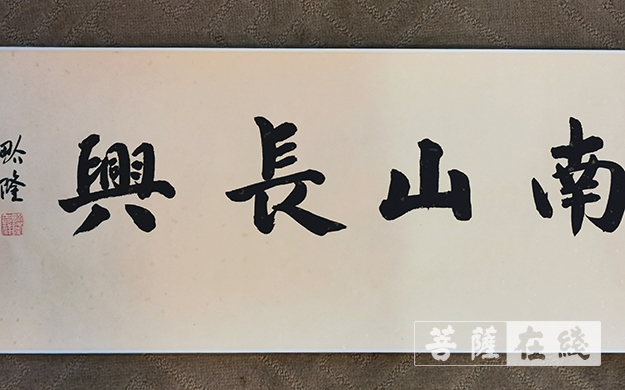 南山長興
隆
菩薩在綫